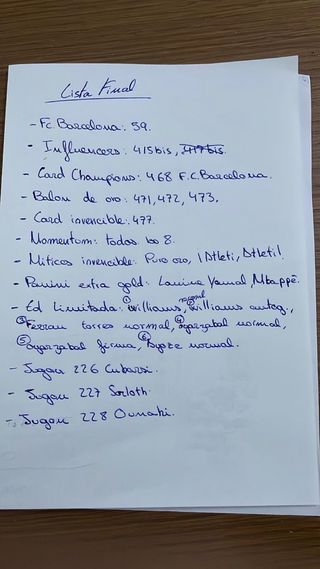 Lista Final
- Fc. Barcelona: 59.
- Influencers: 415bis, 417bis.
- Card Champions: 468 F.C.Barcelona.
- Balon de oro: 471, 472, 473.
- Card invencible: 477.
- Momentum: todos los 8.
- Miticos invencible: Puro oro, ¡Atleti, Atleti!
- Panini extra gold: Lamine Yamal, Mbappé.
- Ed Limitada: ① Williams normal, ② Williams autog.,
③ Ferran torres normal, ④ oyarzabal normal,
⑤ oyarzabal firma, ⑥ normal.
- Jugon 226 Cubarsi.
- Jugon 227 Sorloth.
- Jugon 228 Ounahi.